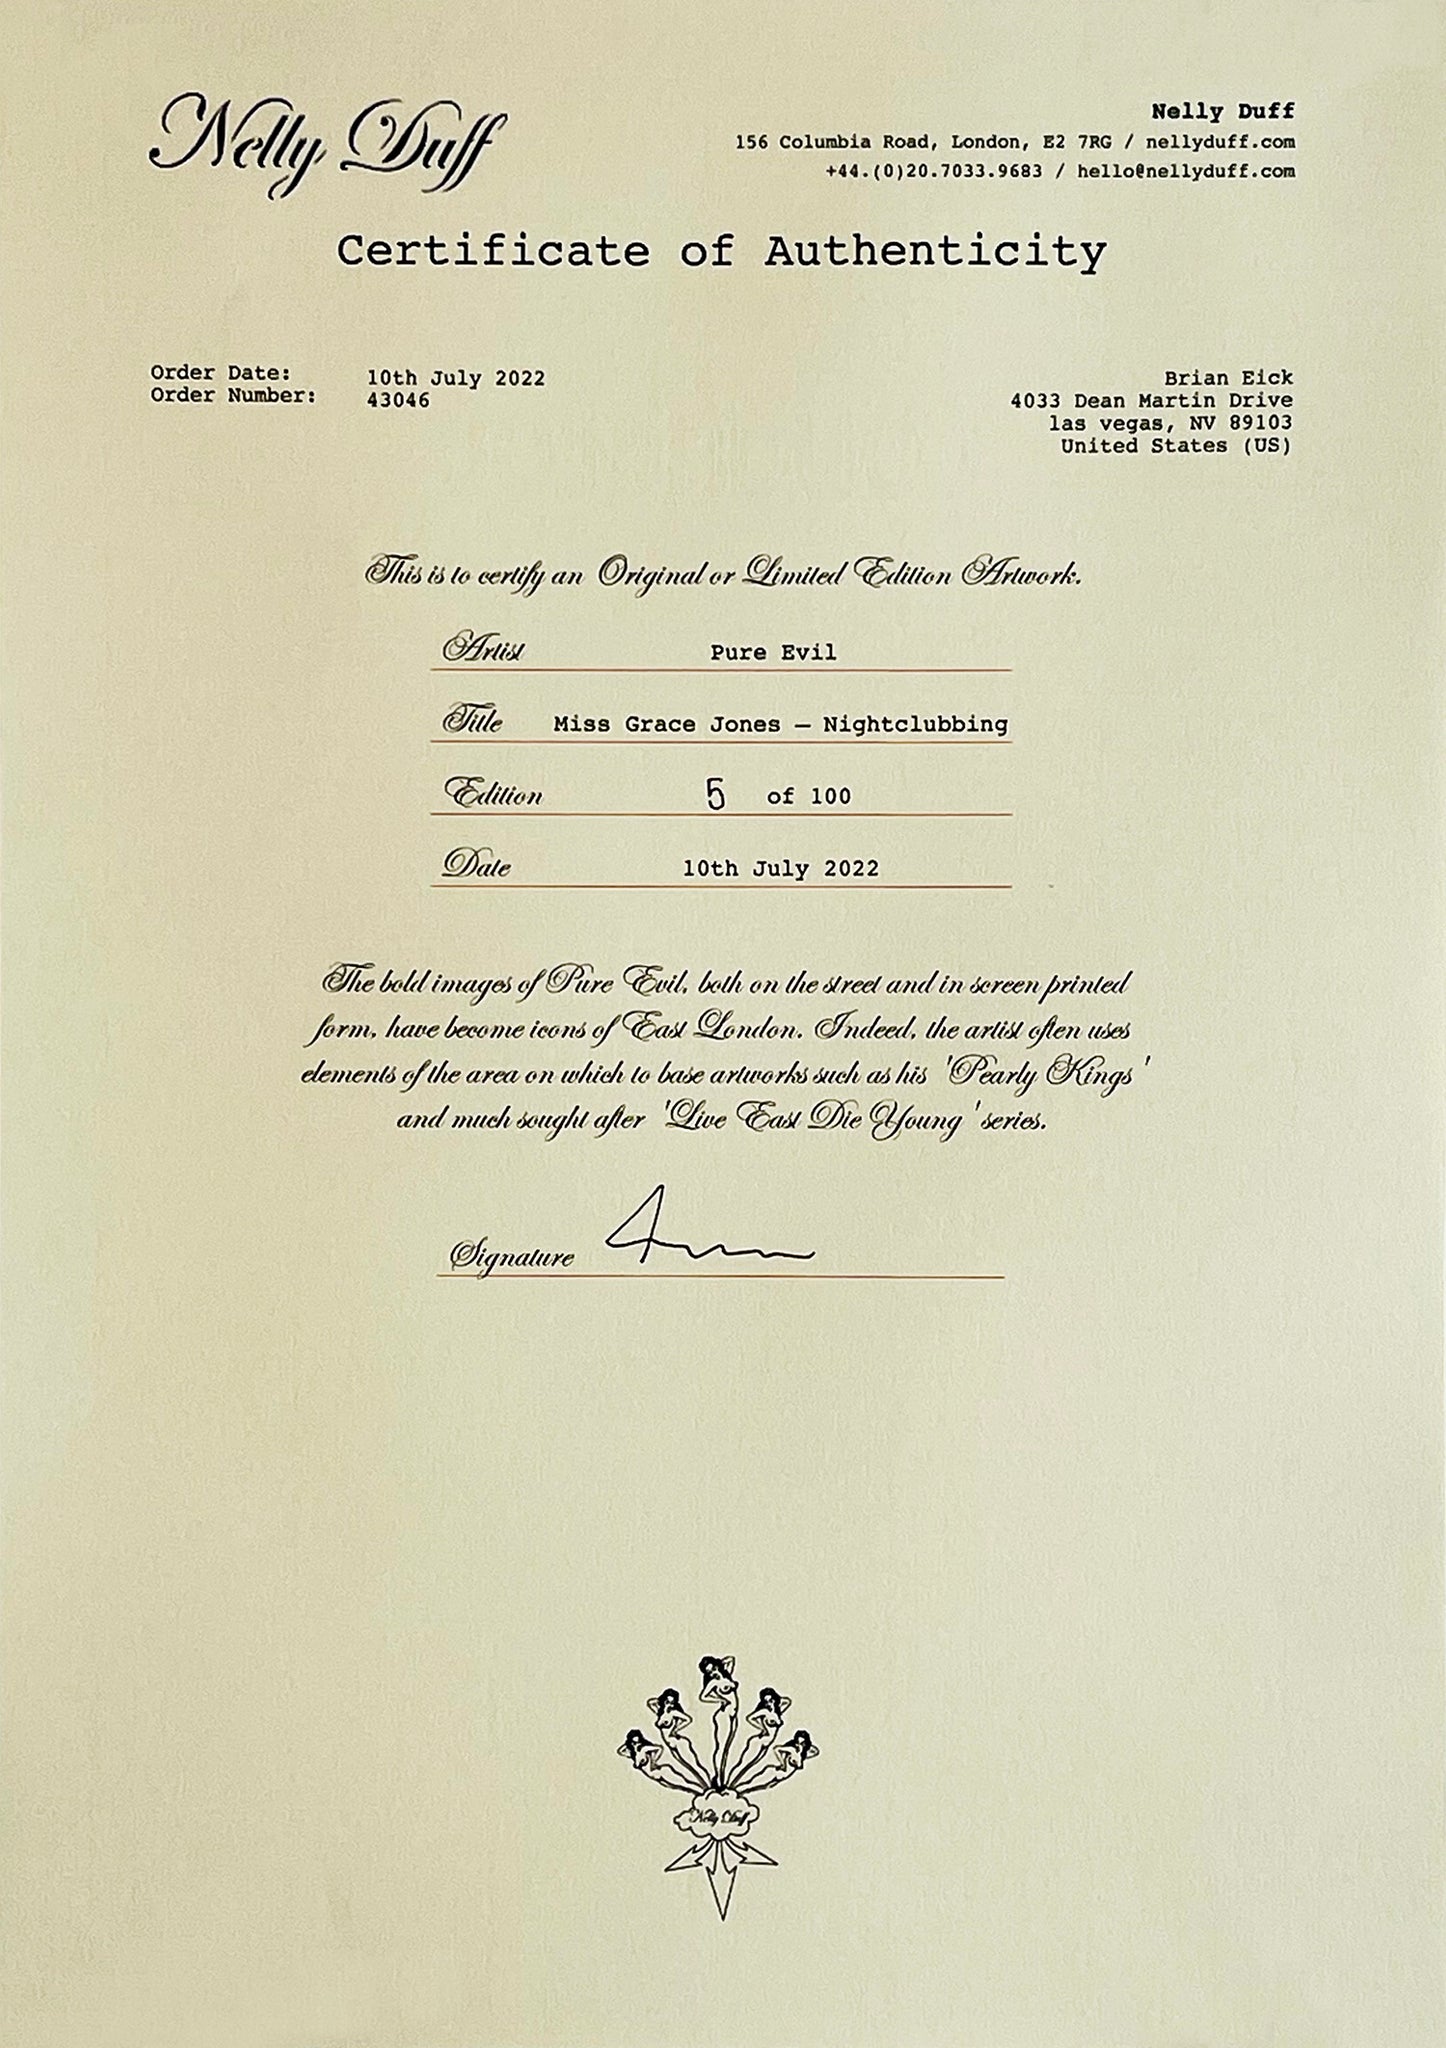 Nelly Duff
Nelly Duff
156 Columbia Road, London, E2 7RG / nellyduff.com
+44.(0)20.7033.9683 / hello@nellyduff.com
Certificate of Authenticity
Order Date: 10th July 2022
Order Number: 43046
Brian Eick
4033 Dean Martin Drive
las vegas, NV 89103
United States (US)
This is to certify an Original or Limited Edition Artwork.
Artist Pure Evil
Title Miss Grace Jones – Nightclubbing
Edition 5 of 100
Date 10th July 2022
The bold images of Pure Evil, both on the street and in screen printed
form, have become icons of East London. Indeed, the artist often uses
elements of the area on which to base artworks such as his 'Pearly Kings'
and much sought after 'Live East Die Young' series.
Signature
Nelly Duff